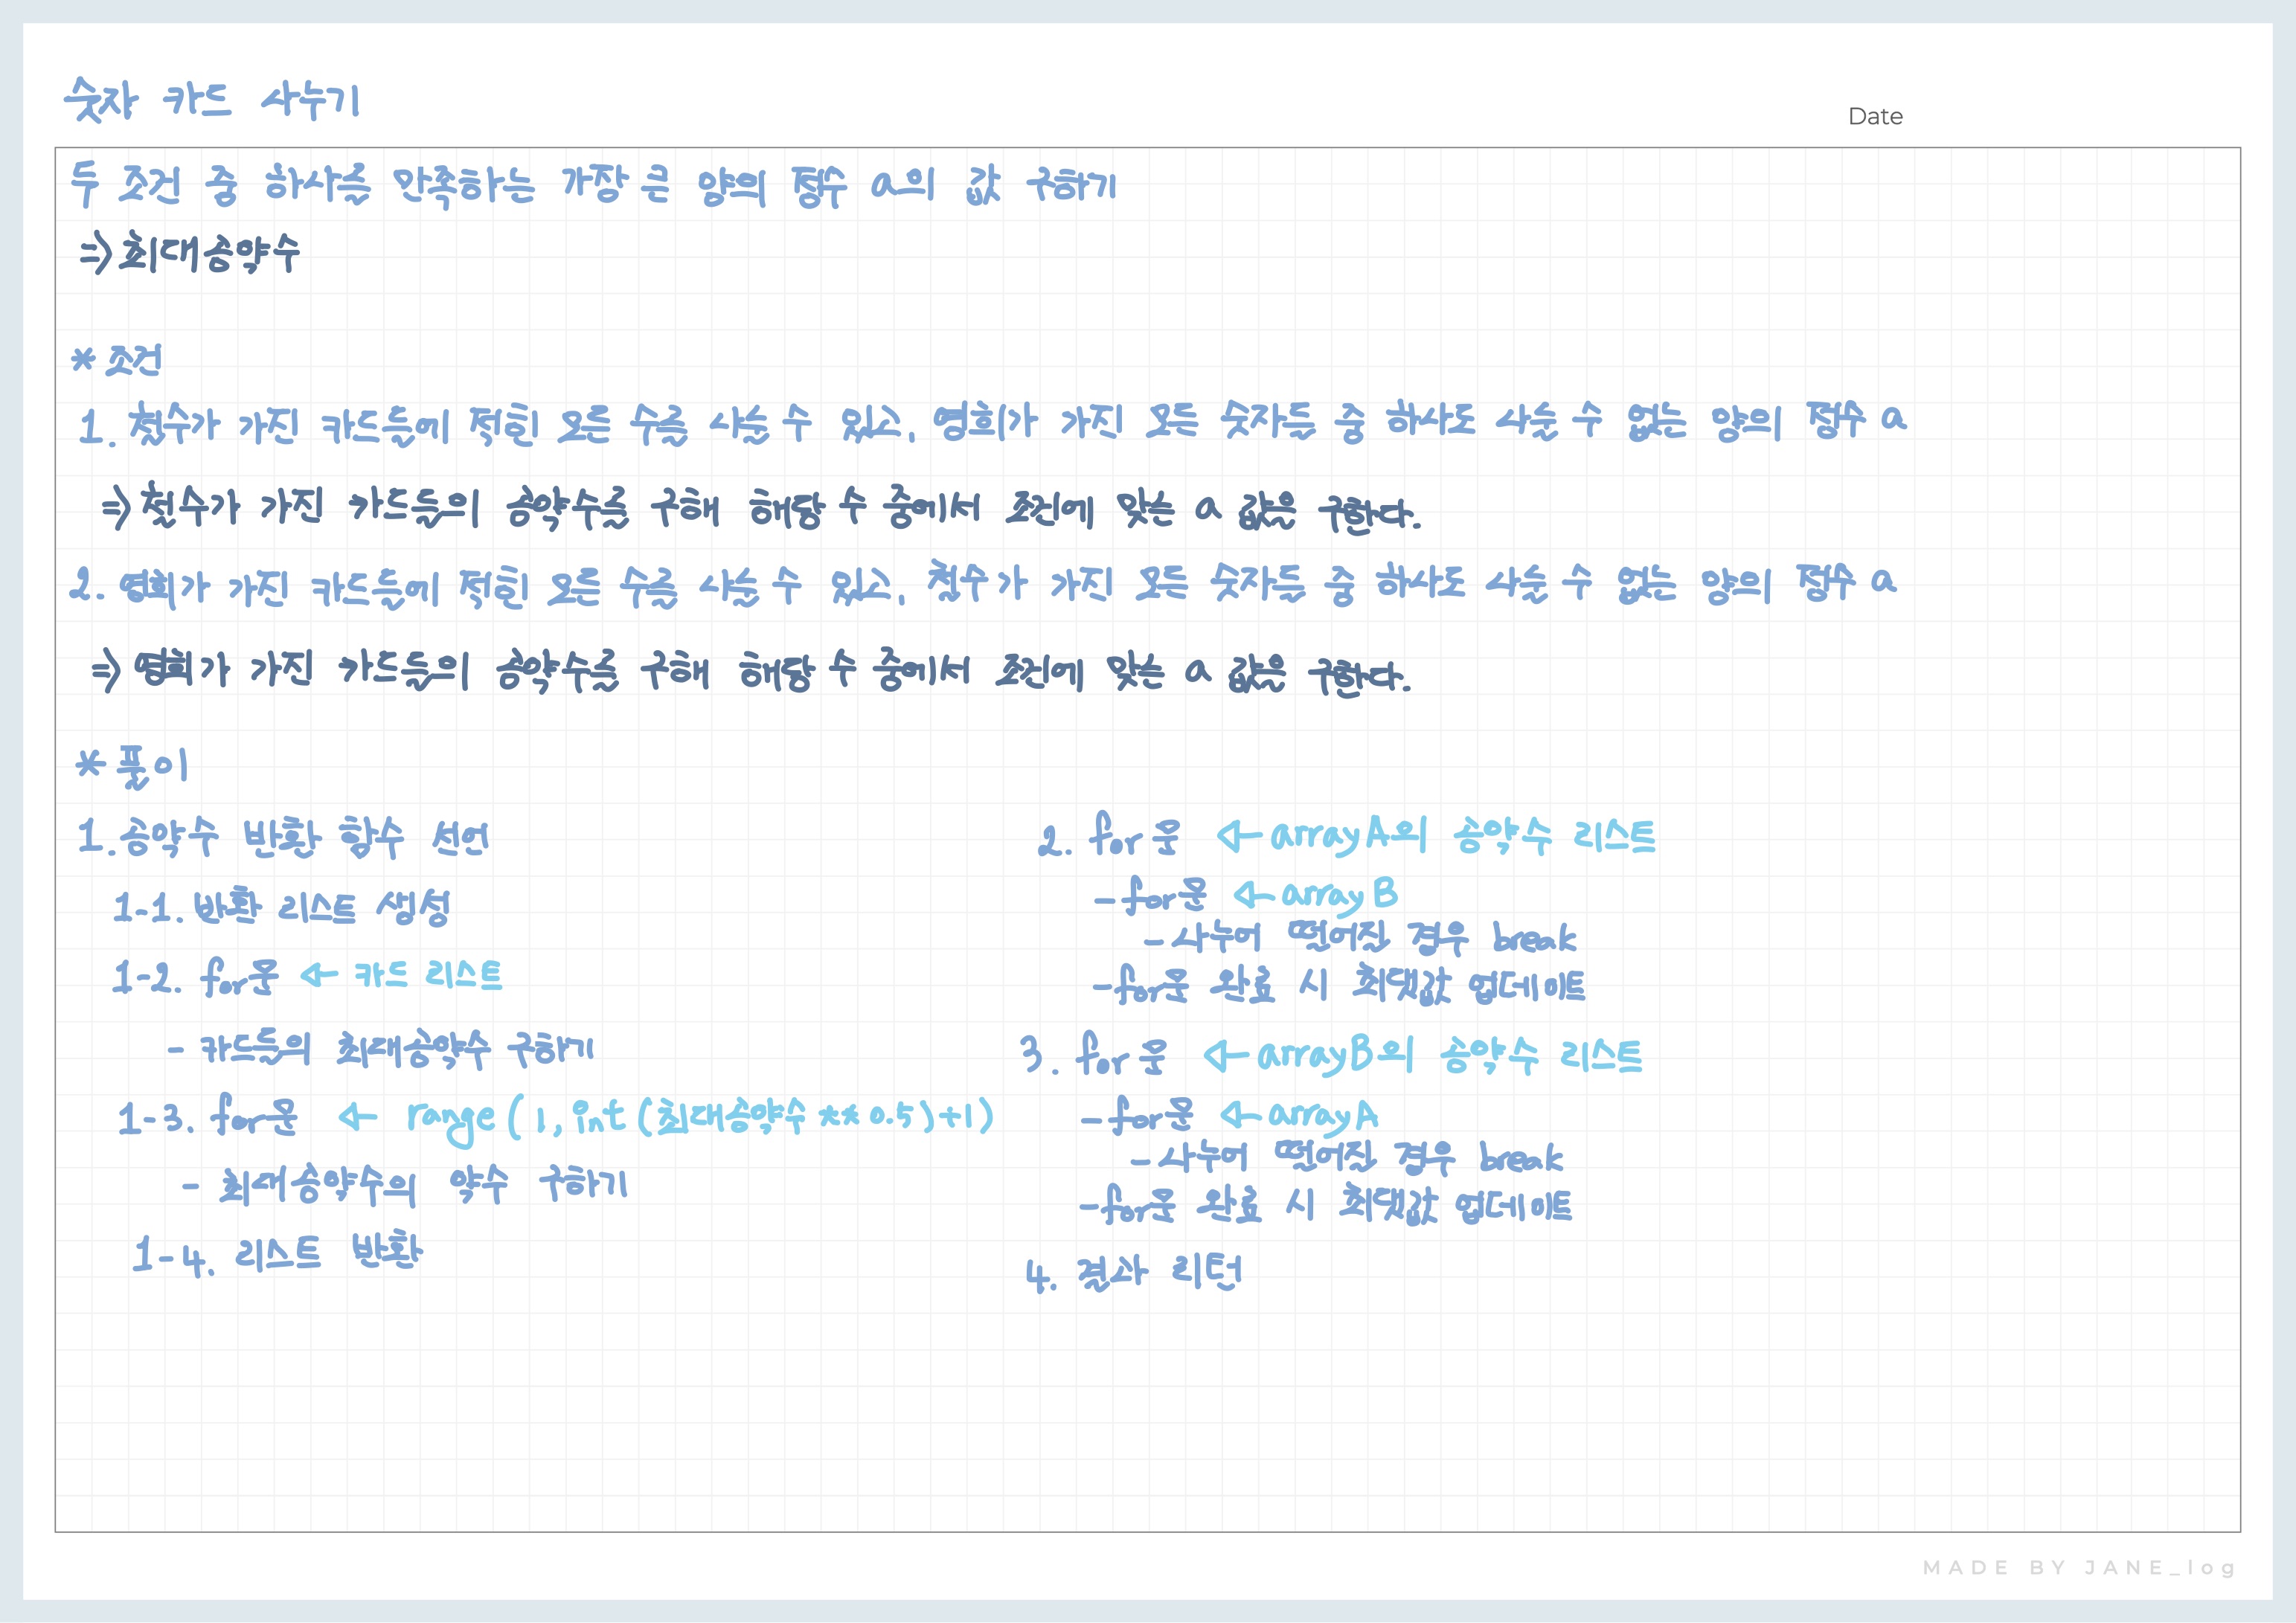 숫자 카드 나누기
Date
두 조건 중 하나를 만족하는 가장 큰 양의 정수 a의 값 구하기
⇒ 최대공약수
* 조건
1. 철수가 가진 카드들에 적힌 모든 수를 나눌 수 있고, 영희가 가진 모든 숫자들 중 하나도 나눌 수 없는 양의 정수 a
⇒ 철수가 가진 카드들의 공약수를 구해 해당 수 중에서 조건에 맞는 a 값을 구한다.
2. 영희가 가진 카드들에 적힌 모든 수를 나눌 수 있고, 철수가 가진 모든 숫자들 중 하나도 나눌 수 없는 양의 정수 a
⇒ 영희가 가진 카드들의 공약수를 구해 해당 수 중에서 조건에 맞는 a 값을 구한다.
* 풀이
1. 공약수 반환 함수 선언
1-1. 반환 리스트 생성
1-2. for문 ← 카드 리스트
- 카드들의 최대공약수 구하기
1-3. for문 ← range(1, int(최대공약수**0.5)+1)
- 최대공약수의 약수 구하기
1-4. 리스트 반환
2. for문 ← arrayA의 공약수 리스트
- for문 ← arrayB
- 나누어 떨어진 경우 break
- for문 완료 시 최댓값 업데이트
3. for문 ← arrayB의 공약수 리스트
- for문 ← arrayA
- 나누어 떨어진 경우 break
- for문 완료 시 최댓값 업데이트
4. 결과 리턴
MADE BY JANE_log